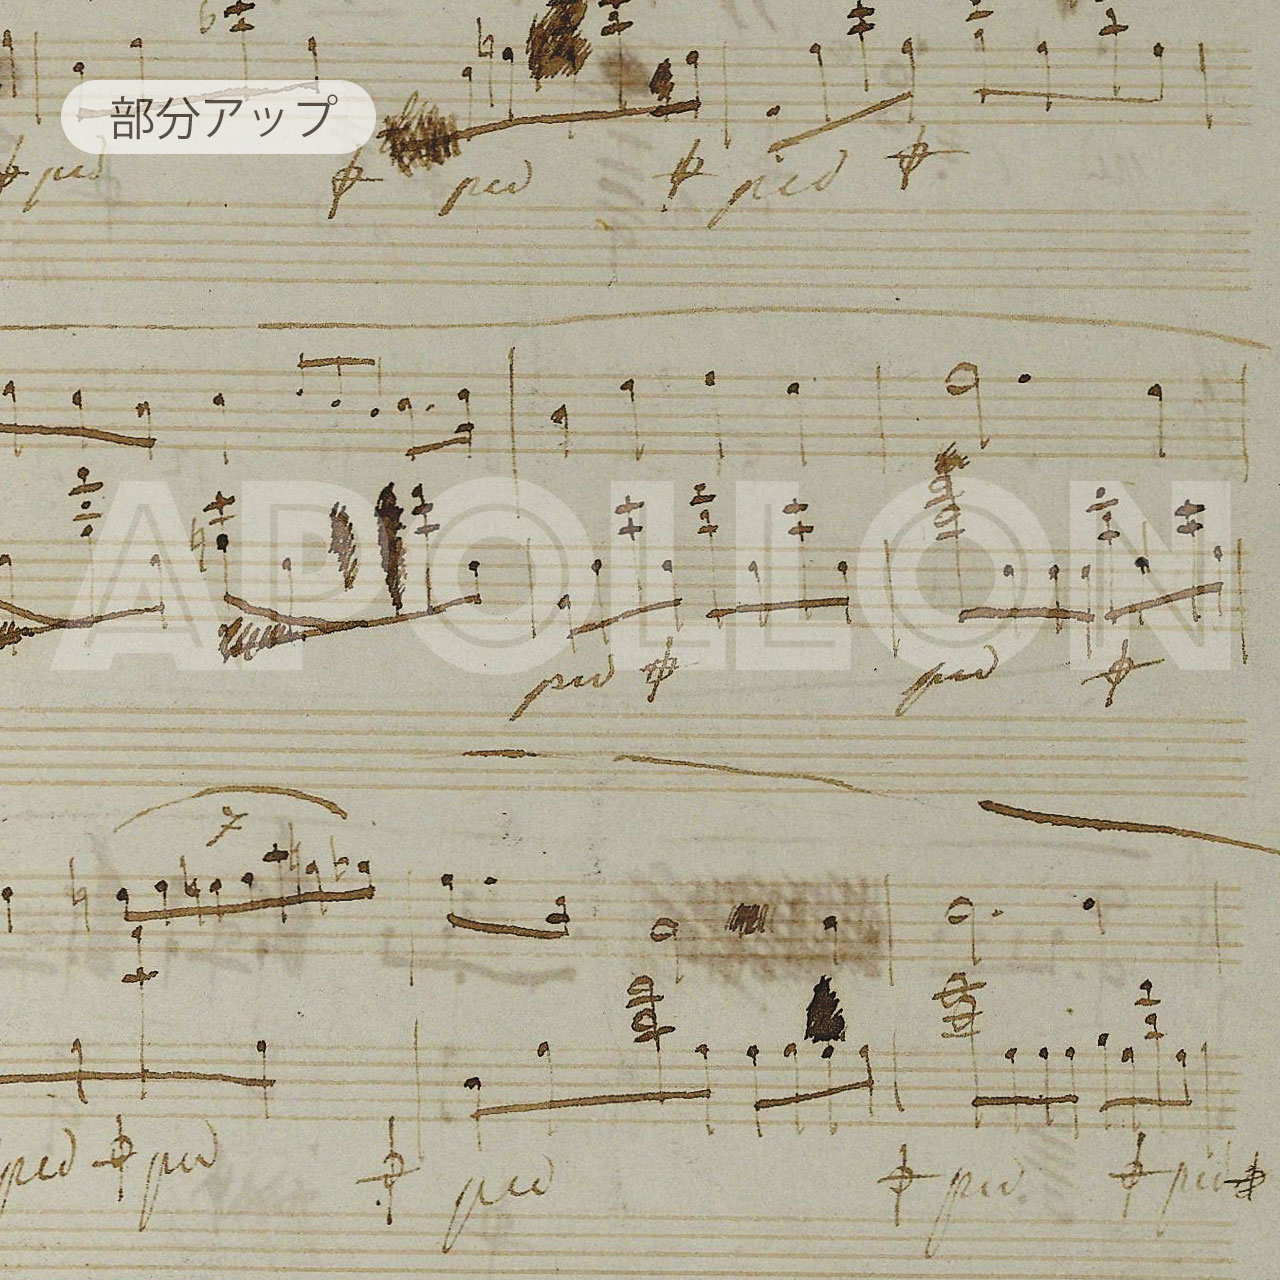 部分アップ
ped ped ped
APOLLON
ped ped
7
ped ped ped ped ped